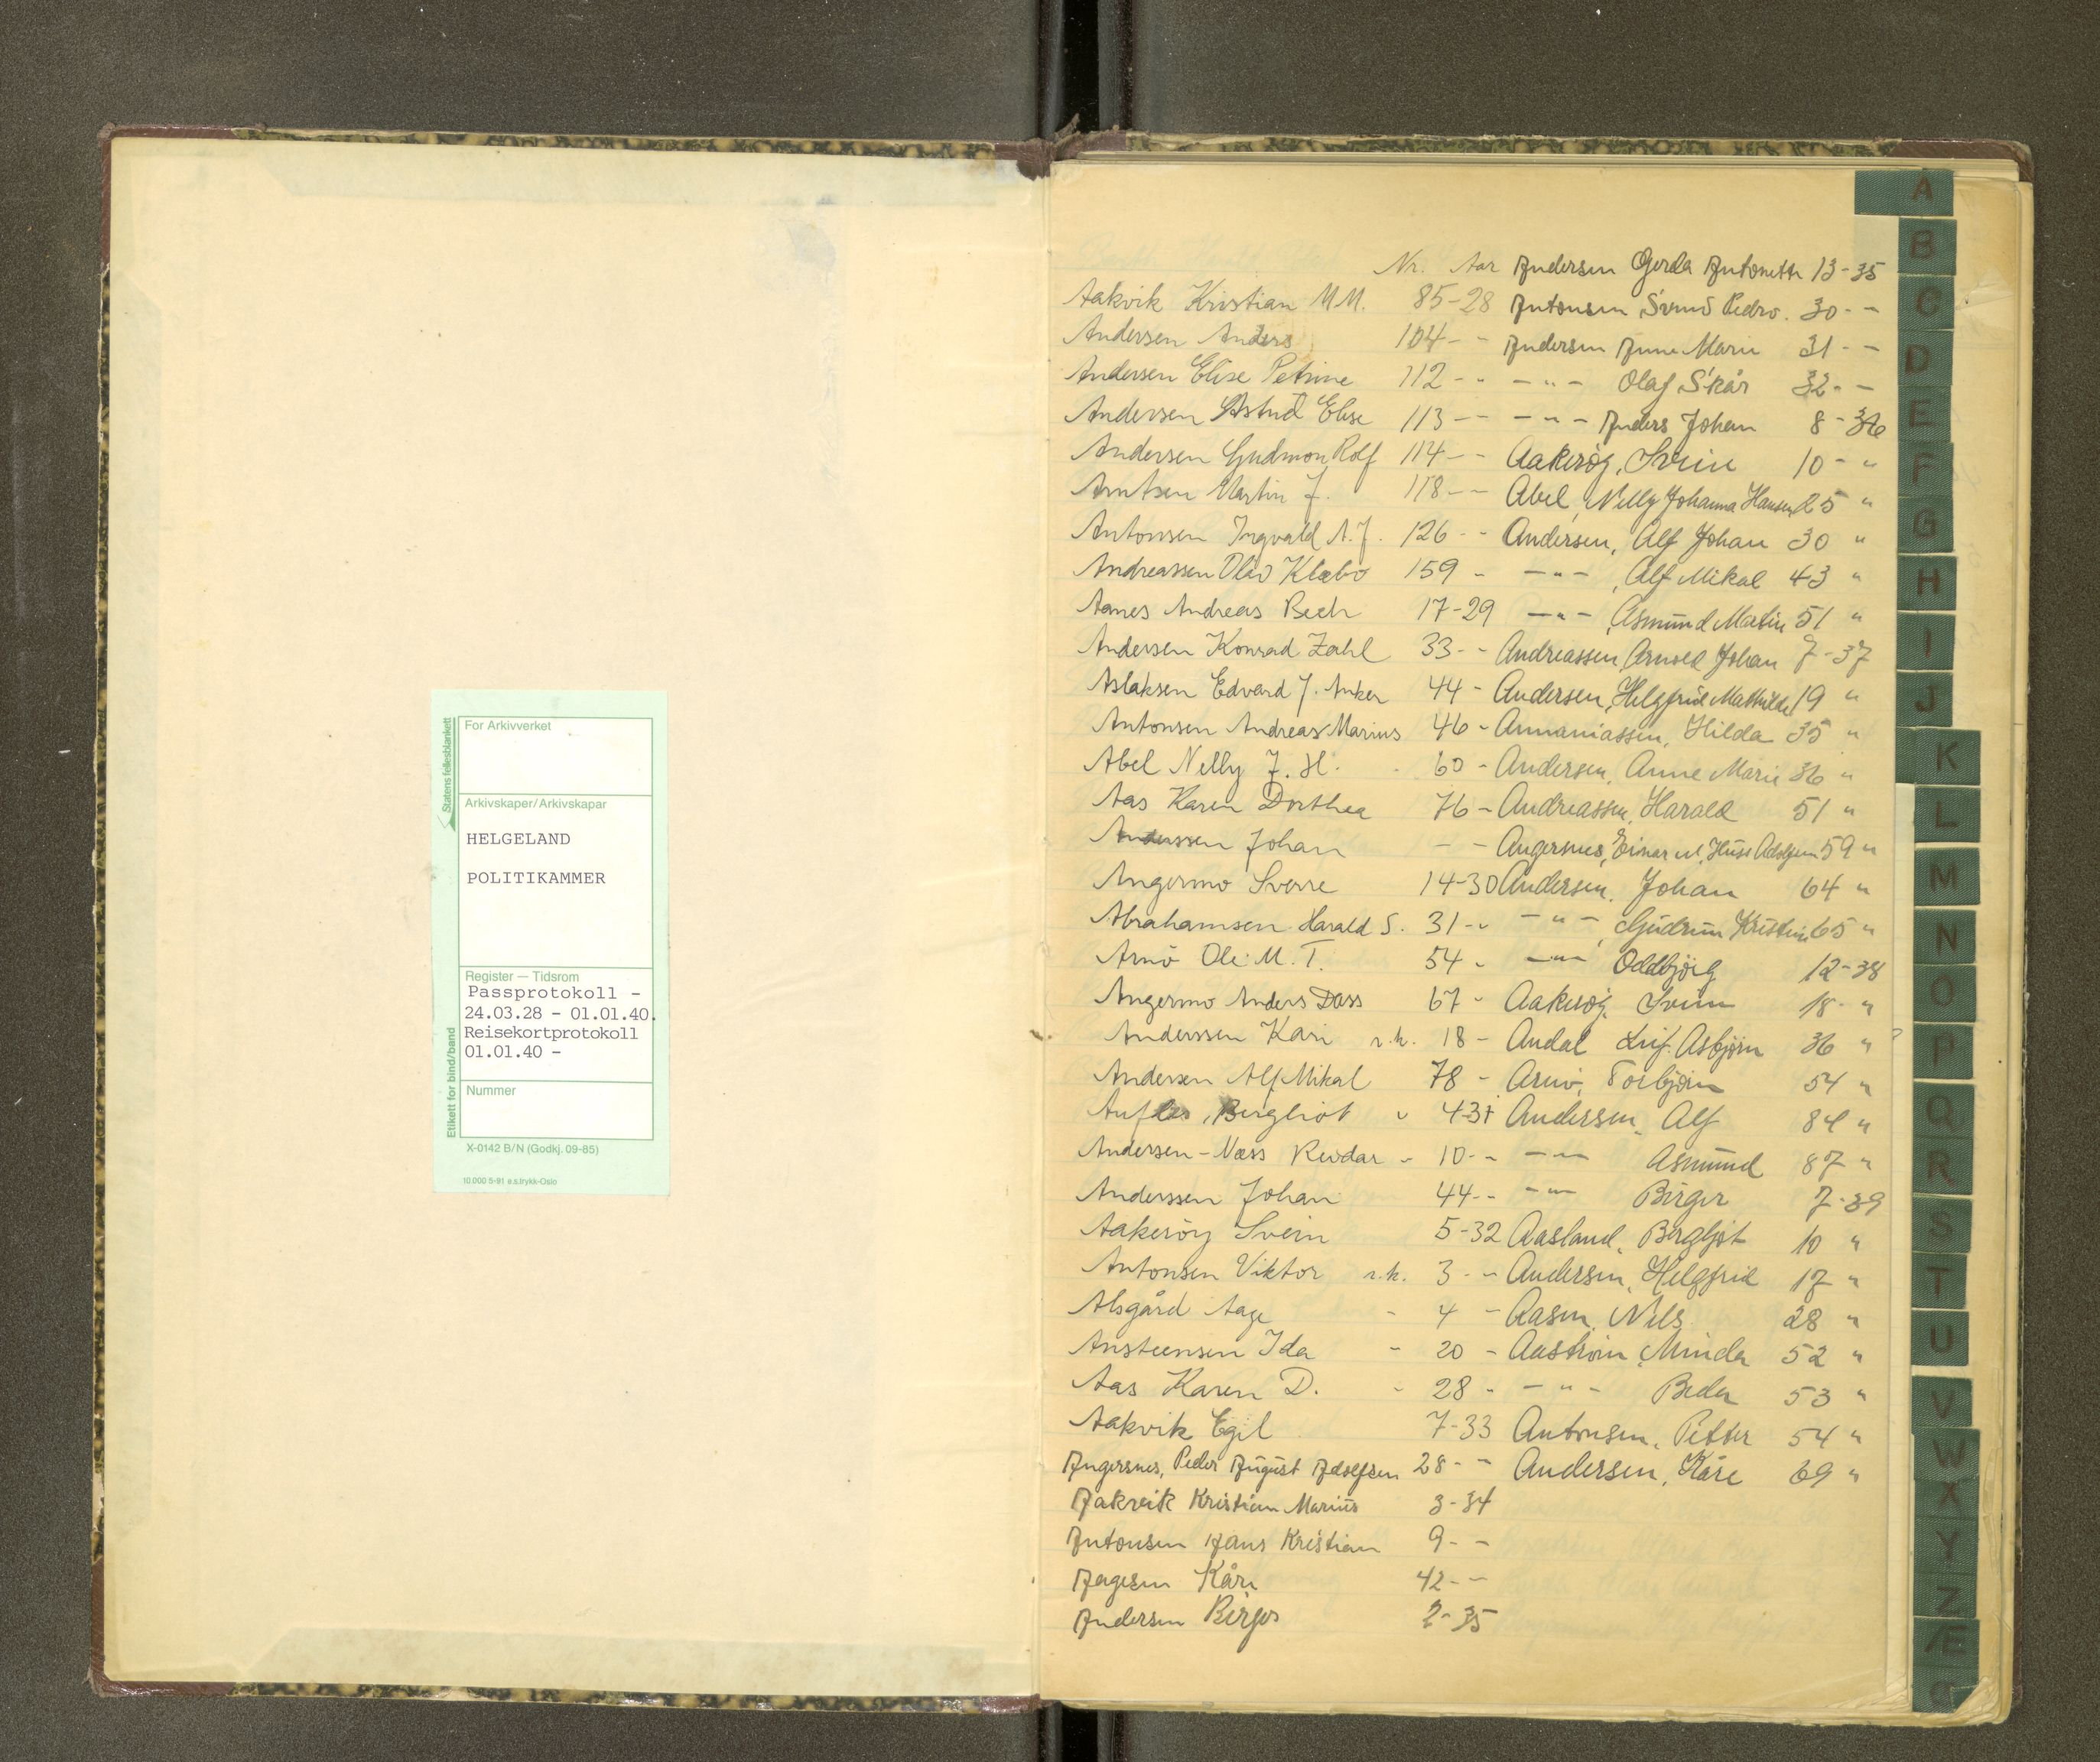 For Arkivverket
Statens fellesblankett
Arkivskaper/Arkivskapar
HELGELAND
POLITIKAMMER
Register — Tidsrom
Passprotokoll -
24.03.28 - 01.01.40.
Reisekortprotokoll
01.01.40 -
Nummer
Etikett for bind/band
X-0142 B/N (Godkj. 09-85)
10.000 5-91 a.s.trykk-Oslo
Nr. Aar
Aakvik Kristian M.M. 85-28
Andersen Anders 104 - -
Andersen Elise Petrine 112 - -
Andersen Astrid Elise 113 - -
Andersen Gudmon Rolf 114 - -
Arntsen Martin J. 118 - -
Antonsen Ingvald A.J. 126 - -
Andreassen Olav Klæbo 159 -
Aanes Andreas Bech 17-29
Andersen Konrad Zahl 33 - -
Aslaksen Edvard J. Anker 44 -
Antonsen Andreas Marius 46 -
Abel Nelly J. H. 60 -
Aas Karen Dorthea 76 -
Anderssen Johan - -
Angermo Sverre 14-30
Abrahamsen Harald S. 31 - "
Arnö Ole M. T. 54 -
Angermo Anders Dass 67 -
Anderssen Kari r.k. 18 -
Andersen Alf Mikal 78 -
Bergliot " 4-31
Andersen-Næss Reidar - 10 - -
Anderssen Johan 44 - -
Aakeröy Svein 5-32
Antonsen Viktor r.k. 3 - -
Alsgård Aage - 4 -
Ansteensen Ida - 20 -
Aas Karen D. - 28 -
Aakvik Egil 7-33
Angersnes, Peder August Adolfsen 28 - -
Aakvik Kristian Marius 3-34
Antonsen Hans Kristian 9 - -
Aagesen Kåre 42 - -
Andersen Birger 2-35
Andersen Gerda Antonette 13-35
Antonsen Svend Pedro. 30 - -
Andersen Anne Marie 31 - -
- " - Olaf Skår 32 - -
- " - Anders Johan 8-36
Aakerøy, Svein 10 - "
Abel, Nelly Johanna Hansen 25 "
Andersen, Alf Johan 30 "
- " - , Alf Mikal 43 "
- " - , Asmund Martin 51 "
Andreassen, Arnold Johan 7-37
Andersen, Helgfrid Mathilde 19 "
Annaniassen, Hilda 35 "
Andersen, Anne Marie 36 "
Andreassen, Harald 51 "
Angersnes, Einar 59 "
Andersen, Johan 64 "
- " - , Gudrun Kristine 65 "
- " - Oddbjörg 12-38
Aakerøy, Svein 18 - "
Andal Leif Asbjørn 36 "
Arnö, Torbjørn 54 "
Andersen, Alf 84 "
- " - Asmund 87 "
- " - Birger 7-39
Aasland, Bergljot 10 "
Andersen, Helgfrid 17 "
Aasen, Nils 28 "
Aaström, Minda 52 "
- " - Peder 53 "
Antonsen, Petter 54 "
Andersen, Kåre 69 "
A
B
C
D
E
F
G
H
I
J
K
L
M
N
O
P
Q
R
S
T
U
V
W
X
Y
Z
Æ